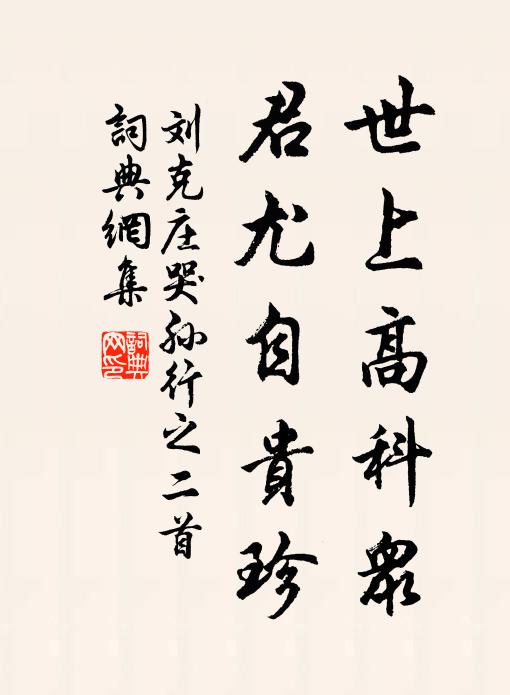 世上高科眾
君尤自貴珍
刘克庄哭孙行之二首
詞典網集
詞典
网印